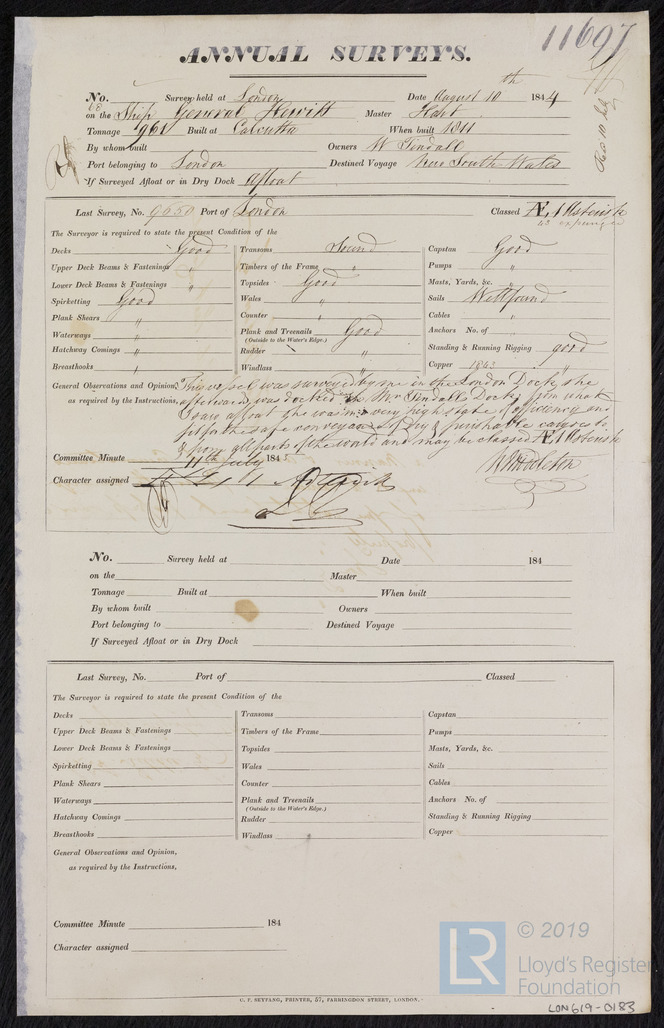 11697
ANNUAL SURVEYS.
No. 63 Survey held at London Date August 10th 1844
on the Ship General Hewitt Master Hart
Tonnage 961 Built at Calcutta When built 1811
By whom built Owners W Tindall
Port belonging to London Destined Voyage New South Wales
If Surveyed Afloat or in Dry Dock Afloat
Last Survey, No. 9550 Port of London Classed Æ 1 Asterisk
43 expunged
The Surveyor is required to state the present Condition of the
Decks Good Transoms Sound Capstan Good
Upper Deck Beams & Fastenings " Timbers of the Frame " Pumps "
Lower Deck Beams & Fastenings " Topsides Good Masts, Yards, &c. "
Spirketting Good Wales " Sails Well found
Plank Shears " Counter " Cables "
Waterways " Plank and Treenails Good Anchors No. of "
(Outside to the Water's Edge.)
Hatchway Comings " Rudder " Standing & Running Rigging good
Breasthooks " Windlass " Copper 1843
General Observations and Opinion, This vessel was surveyed by me in the London Dock, she
as required by the Instructions, afterwards was docked in Mr Tindalls Dock, from what
I saw afloat she was in a very high state of efficiency and
fit for the safe conveyance of dry & perishable cargoes to
& from all parts of the world and may be classed Æ 1 Asterisk
Committee Minute 11th July 1845 W Middleton
Character assigned Æ 1 Asterisk
No. Survey held at Date 184
on the Master
Tonnage Built at When built
By whom built Owners
Port belonging to Destined Voyage
If Surveyed Afloat or in Dry Dock
Last Survey, No. Port of Classed
The Surveyor is required to state the present Condition of the
Decks Transoms Capstan
Upper Deck Beams & Fastenings Timbers of the Frame Pumps
Lower Deck Beams & Fastenings Topsides Masts, Yards, &c.
Spirketting Wales Sails
Plank Shears Counter Cables
Waterways Plank and Treenails Anchors No. of
(Outside to the Water's Edge.)
Hatchway Comings Rudder Standing & Running Rigging
Breasthooks Windlass Copper
General Observations and Opinion,
as required by the Instructions,
Committee Minute 184
Character assigned
LR © 2019
Lloyd's Register
Foundation
C. F. SEYFANG, PRINTER, 57, FARRINGDON STREET, LONDON.
LON619-0183